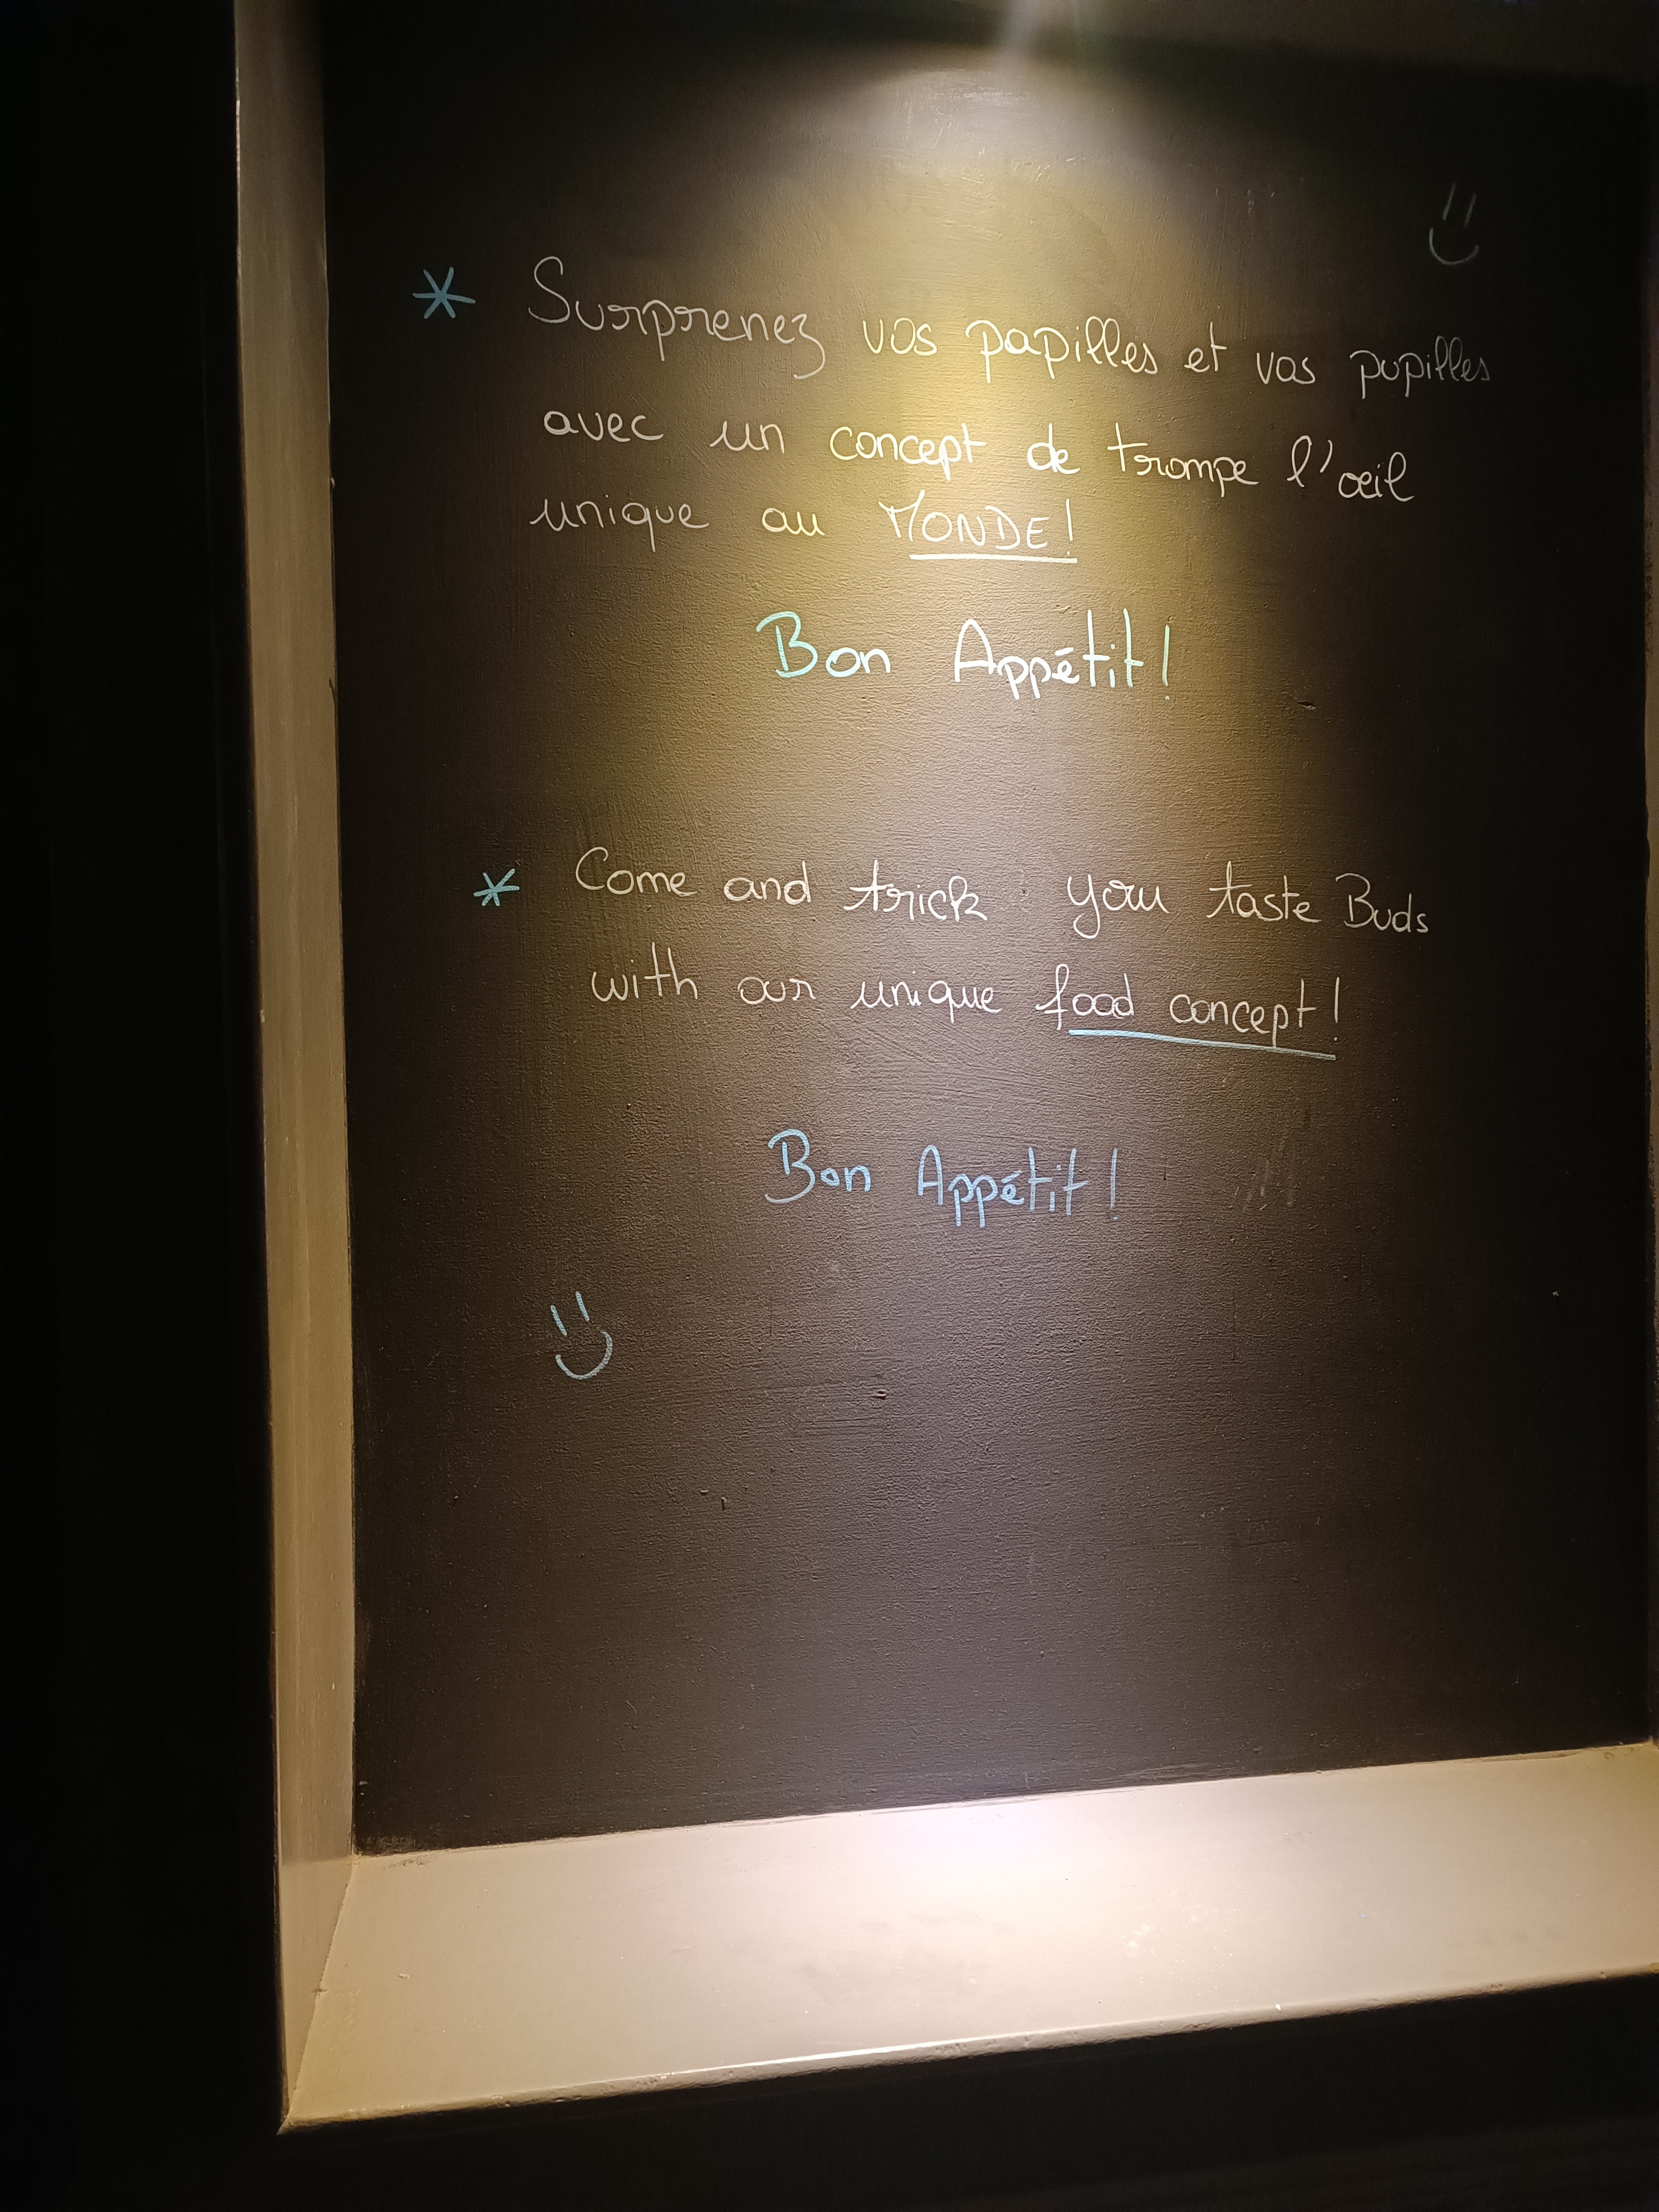 * Surprenez vos papilles et vos pupilles
avec un concept de trompe l'oeil
unique au MONDE!
Bon Appétit!
* Come and trick you taste Buds
with our unique food concept!
Bon Appétit!